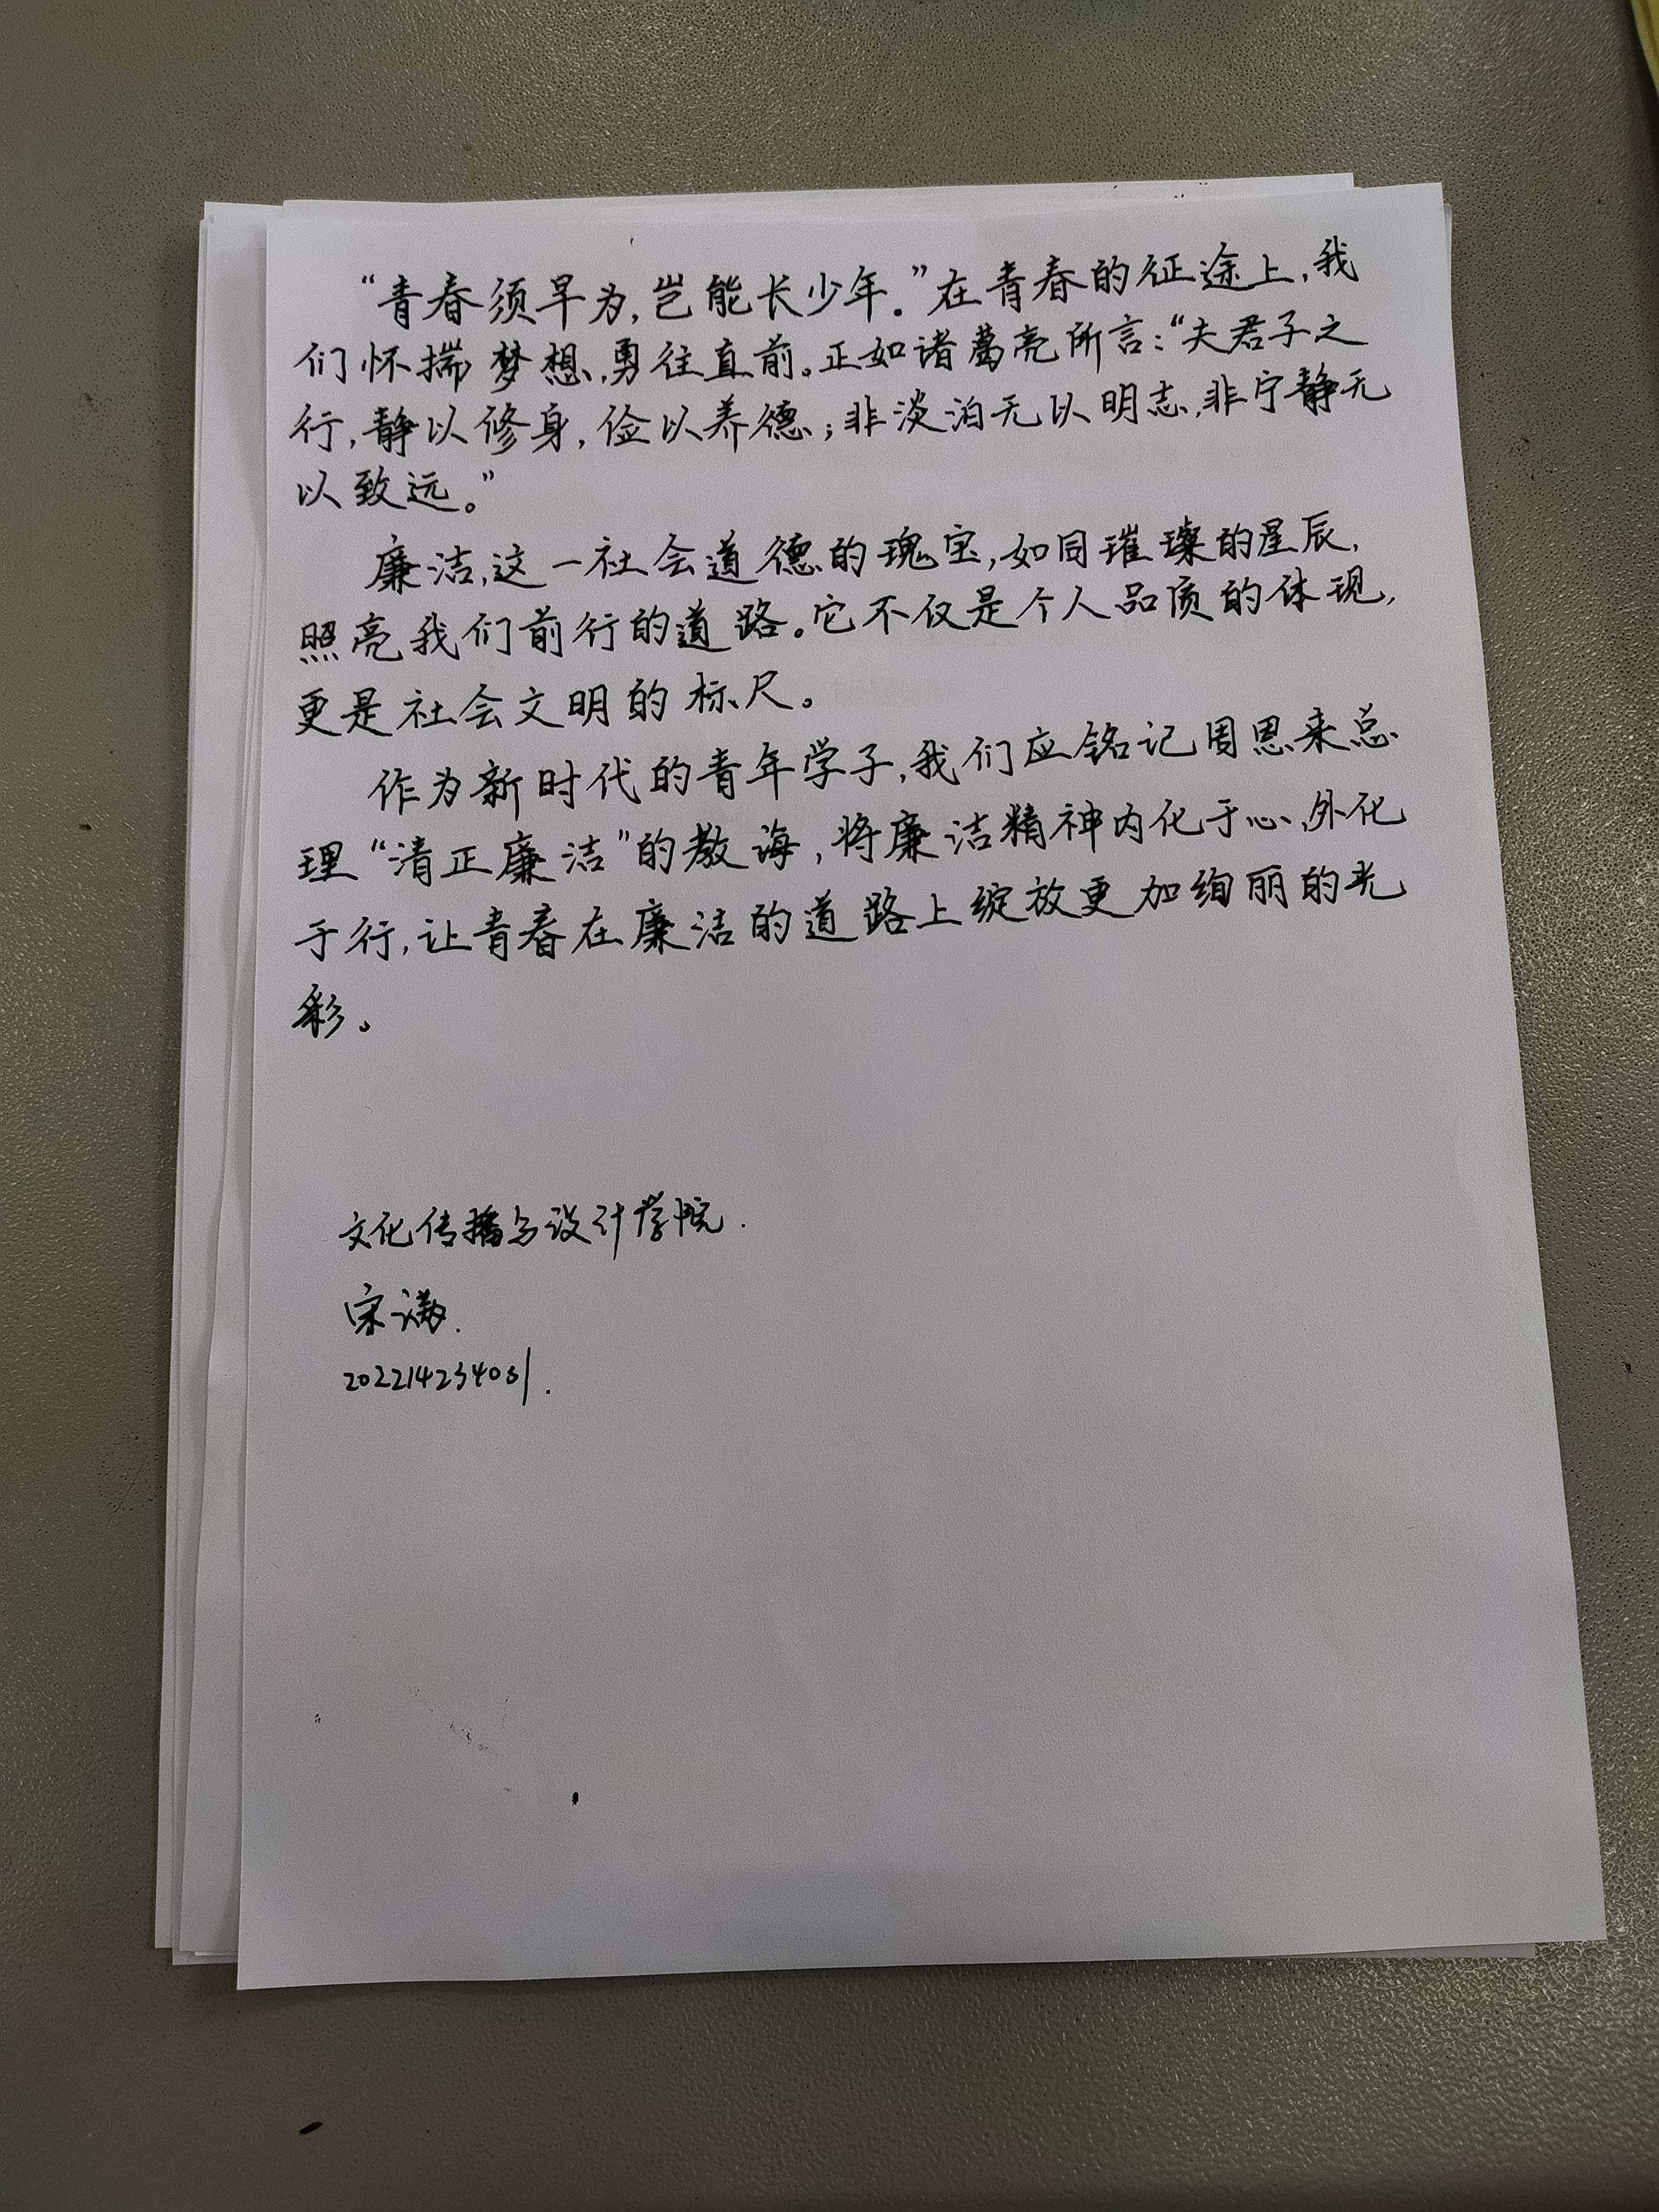 “青春须早为,岂能长少年。”在青春的征途上,我
们怀揣梦想,勇往直前。正如诸葛亮所言:“夫君子之
行,静以修身,俭以养德;非淡泊无以明志,非宁静无
以致远。”
廉洁,这一社会道德的瑰宝,如同璀璨的星辰,
照亮我们前行的道路。它不仅是个人品质的体现,
更是社会文明的标尺。
作为新时代的青年学子,我们应铭记周恩来总
理“清正廉洁”的教诲,将廉洁精神内化于心,外化
于行,让青春在廉洁的道路上绽放更加绚丽的光
彩。
文化传播与设计学院.
宋